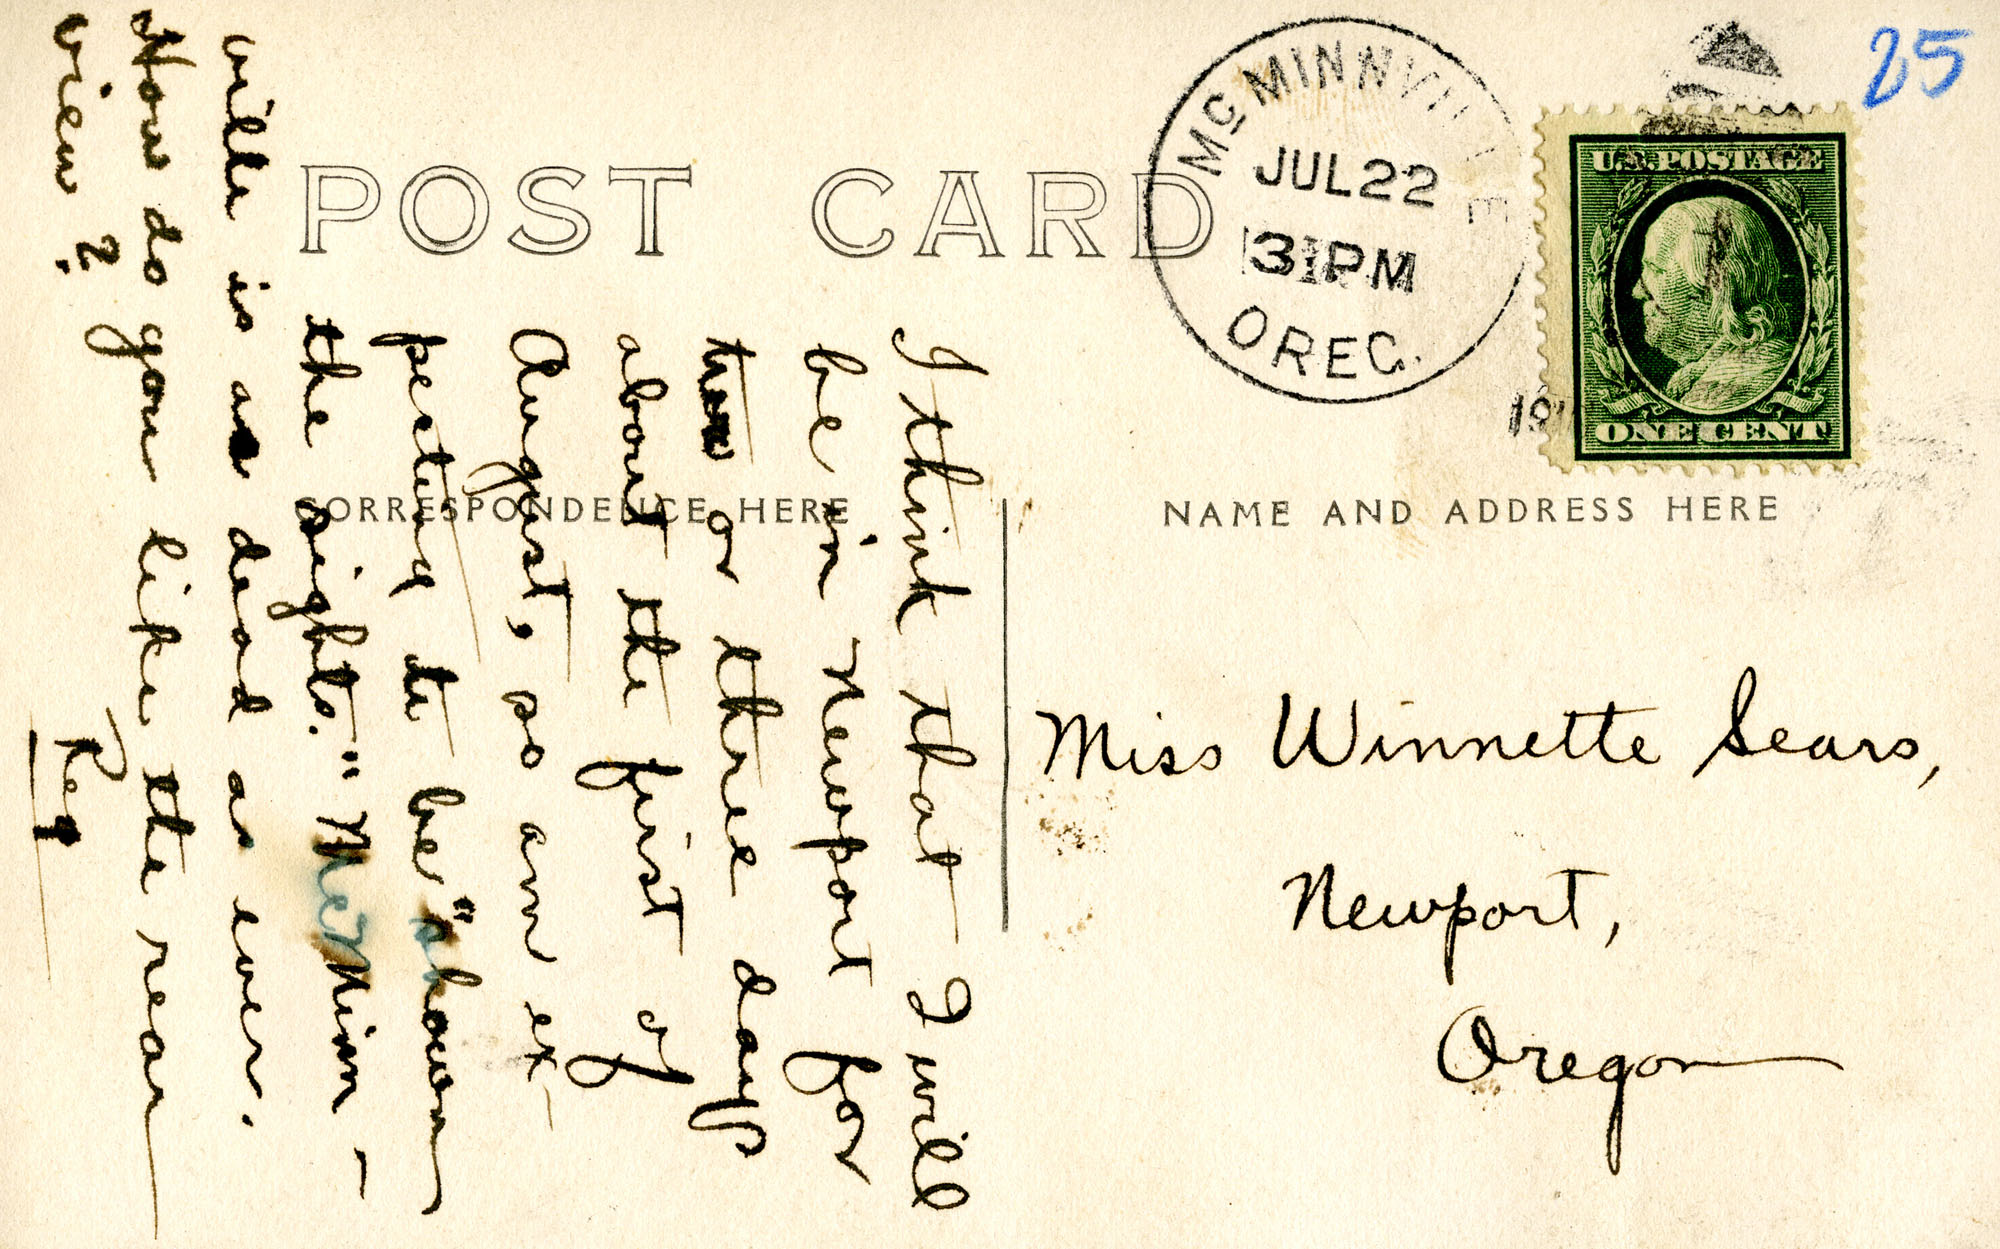 25
McMINNVILLE
JUL 22
3 PM
OREG.
U.S. POSTAGE
ONE CENT
POST CARD
CORRESPONDENCE HERE
NAME AND ADDRESS HERE
I think that I will
be in Newport for
two or three days
about the first of
August, so am ex-
pecting to be "shown
the sights." McMinn-
ville is as dead as ever.
How do you like the rear
view?
Reg
Miss Winnette Sears,
Newport,
Oregon